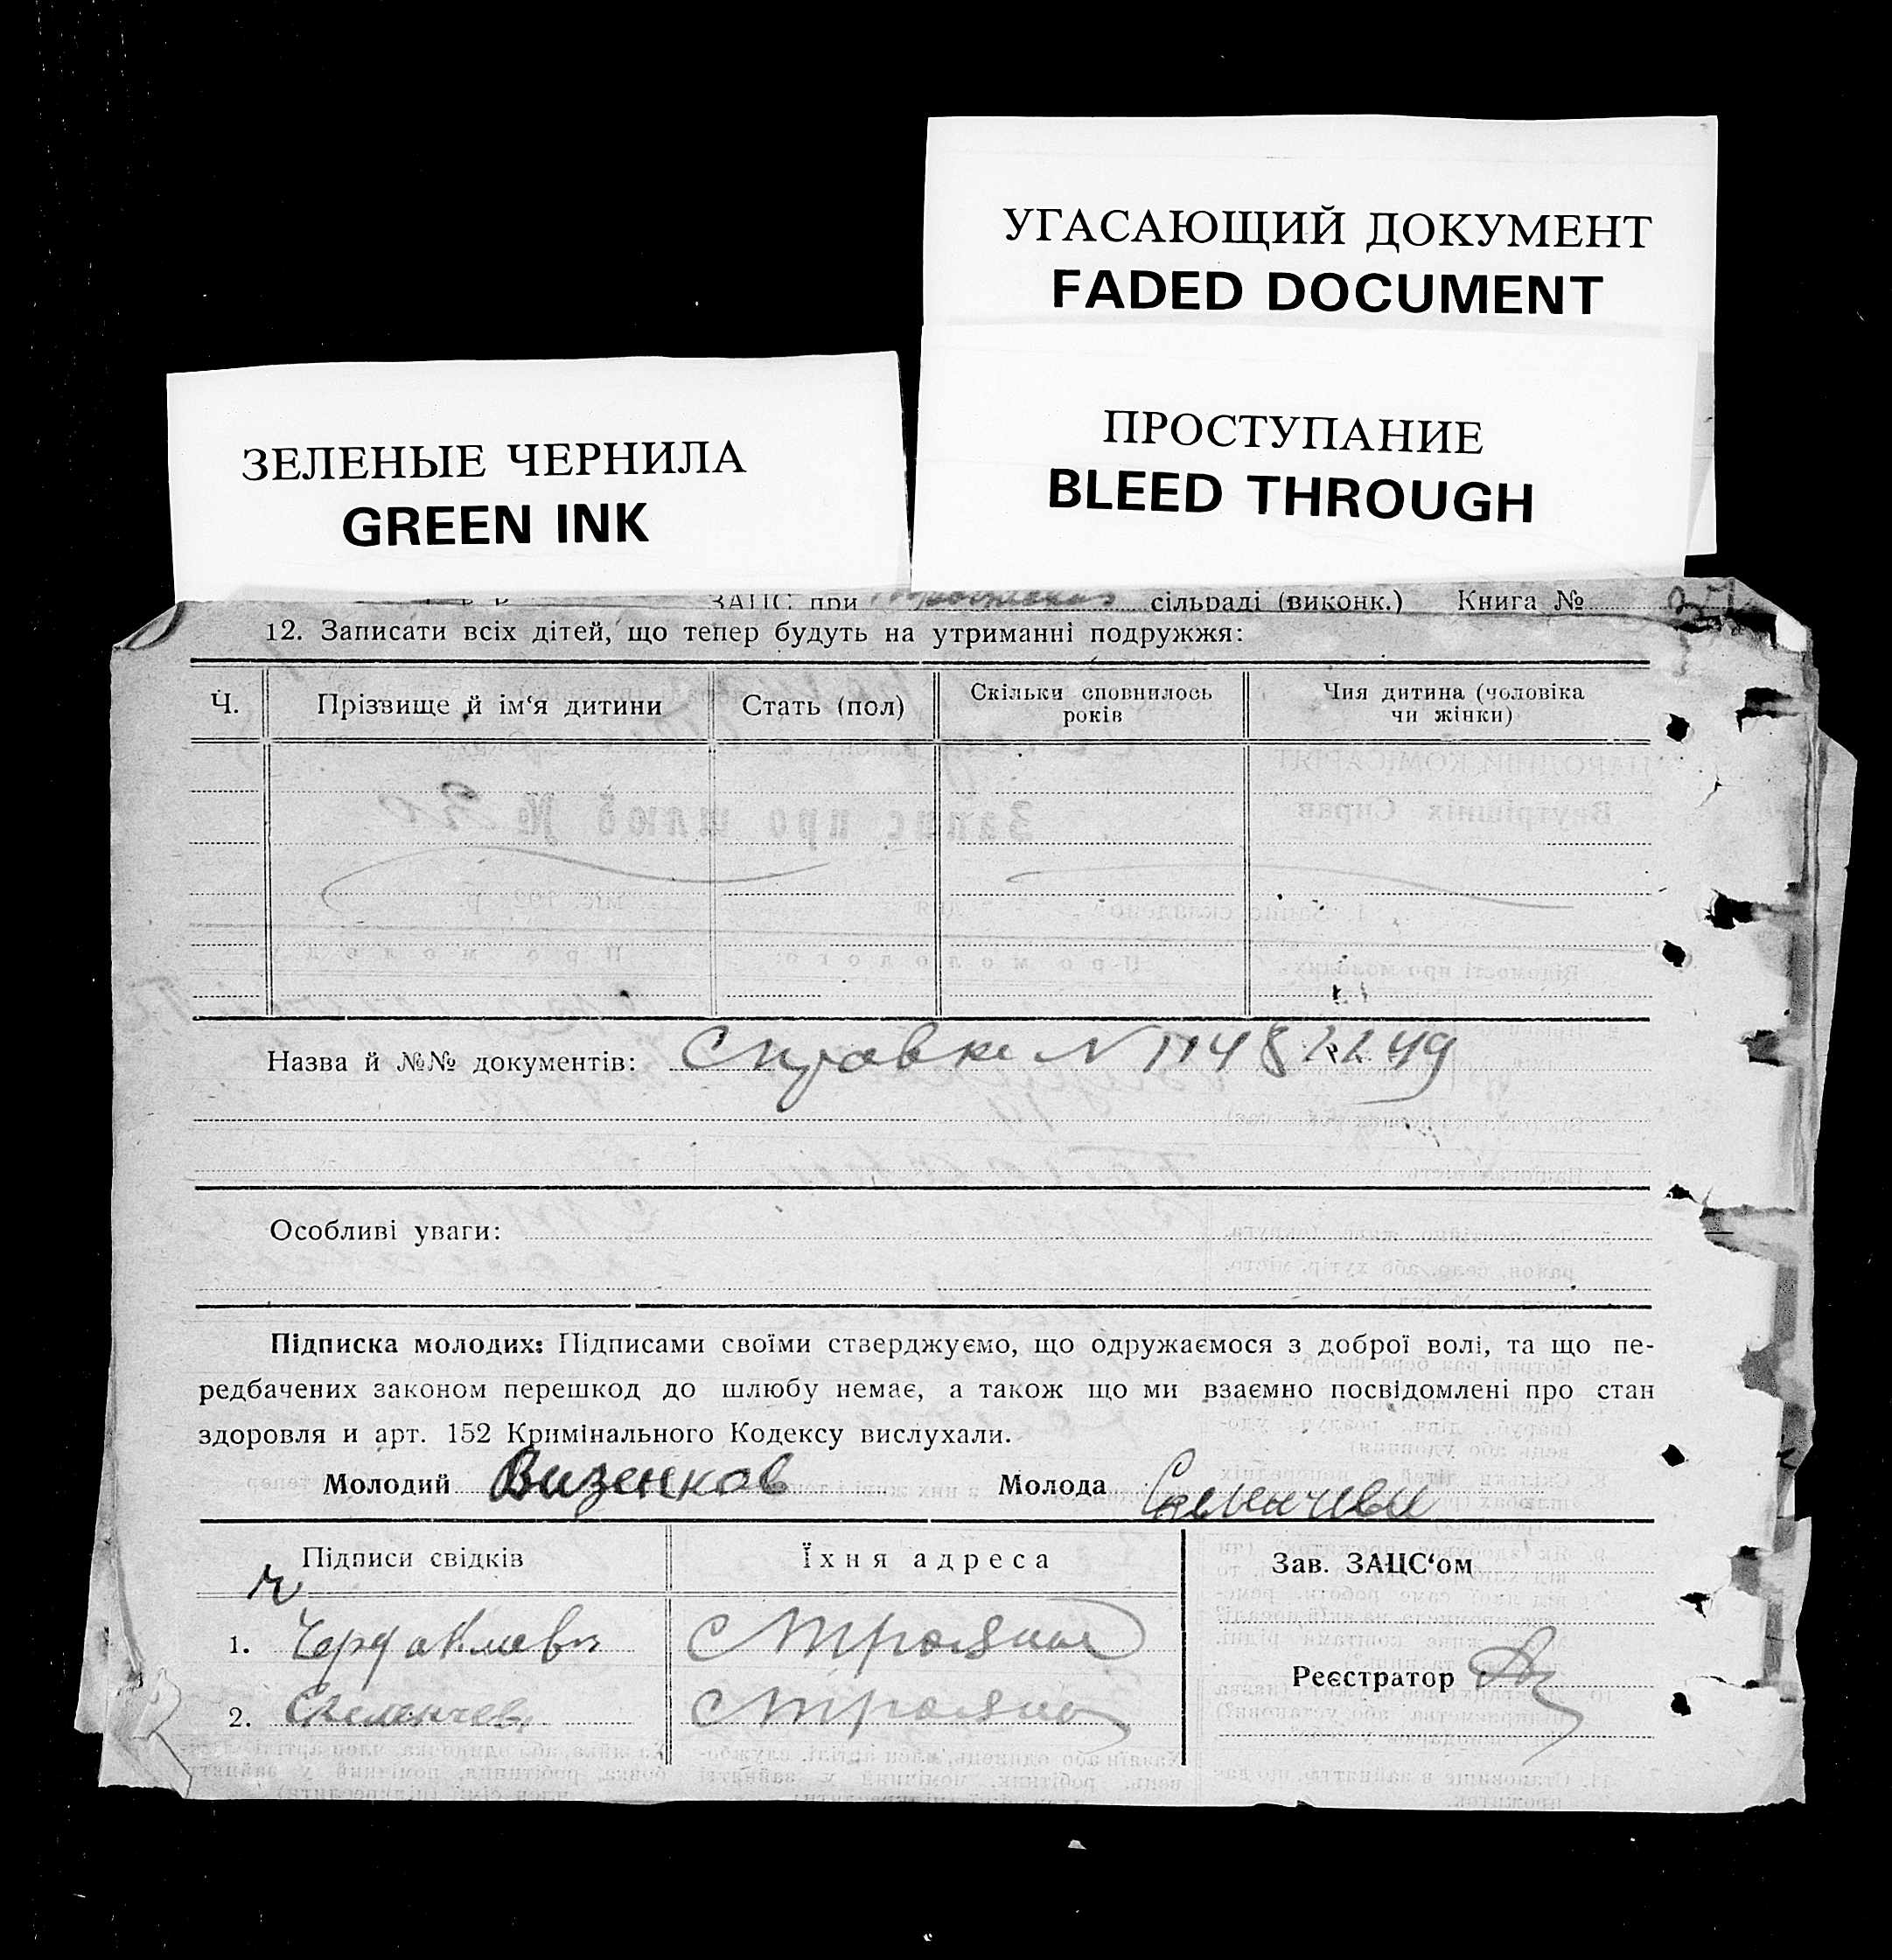 УГАСАЮЩИЙ ДОКУМЕНТ
FADED DOCUMENT
ПРОСТУПАНИЕ
BLEED THROUGH
ЗЕЛЕНЫЕ ЧЕРНИЛА
GREEN INK
ЗАЦС при сільраді (виконк.) Книга №
12. Записати всіх дітей, що тепер будуть на утриманні подружжя:
Ч. Прізвище й ім‘я дитини Стать (пол) Скільки сповнилось років Чия дитина (чоловіка чи жінки)
Назва й №№ документів: Справка N
Особливі уваги:
Підписка молодих: Підписами своїми стверджуємо, що одружаємося з доброї волі, та що пе-
редбачених законом перешкод до шлюбу немає, а також що ми взаємно посвідомлені про стан
здоровля и арт. 152 Кримінального Кодексу вислухали.
Молодий Визенков Молода
Підписи свідків Їхня адреса Зав. ЗАЦС‘ом
1. с Трояны
Реєстратор
2. с Трояны